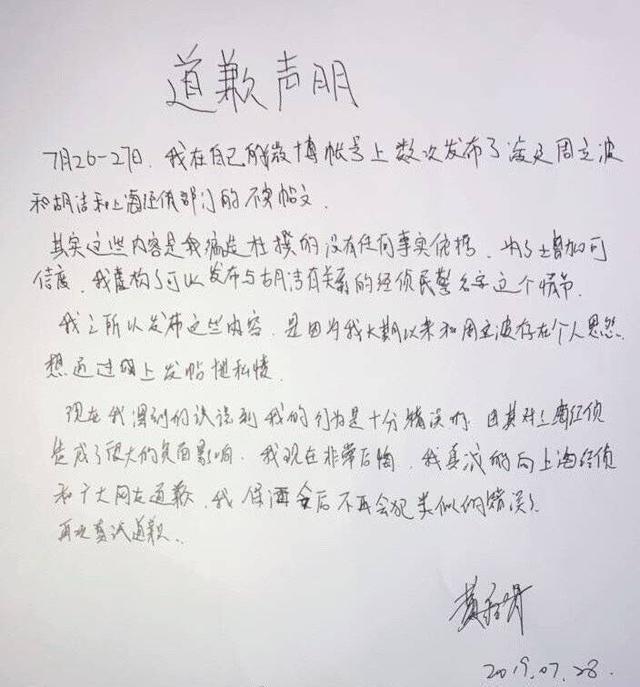 道歉声明
7月26-27日,我在自己的微博帐号上数次发布了涉及周立波
和胡洁和上海经侦部门的不实帖文.
其实这些内容是我编造杜撰的没有任何事实依据,为了增加可
信度,我虚构了可以发布与胡洁有关系的经侦民警名字这个情节.
我之所以发布这些内容,是因为我长期以来和周立波存在个人恩怨.
想通过网上发帖泄私愤.
现在我深刻的认识到我的行为是十分错误的,因其对上海经侦
造成了很大的负面影响,我现在非常后悔,我真诚的向上海经侦
和广大网友道歉,我保证今后不再会犯类似的错误.
再次真诚道歉.
2019.07.28.